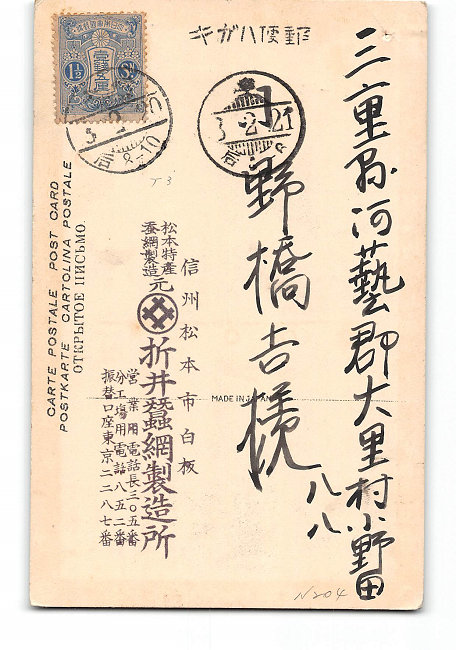 郵便ハガキ
三重縣河藝郡大里村小野田
八八
野橋吉様
3.2.21
信州松本市白板
松本特産
蚕網製造元
折井蠶網製造所
営業用電話長三〇五番
分工場用電話八五二番
振替口座東京二二八七番
CARTE POSTALE POST CARD
POSTKARTE CARTOLINA POSTALE
ОТКРЫТОЕ ПИСЬМО
MADE IN JAPAN
壹錢五厘
1½ Sn
N204